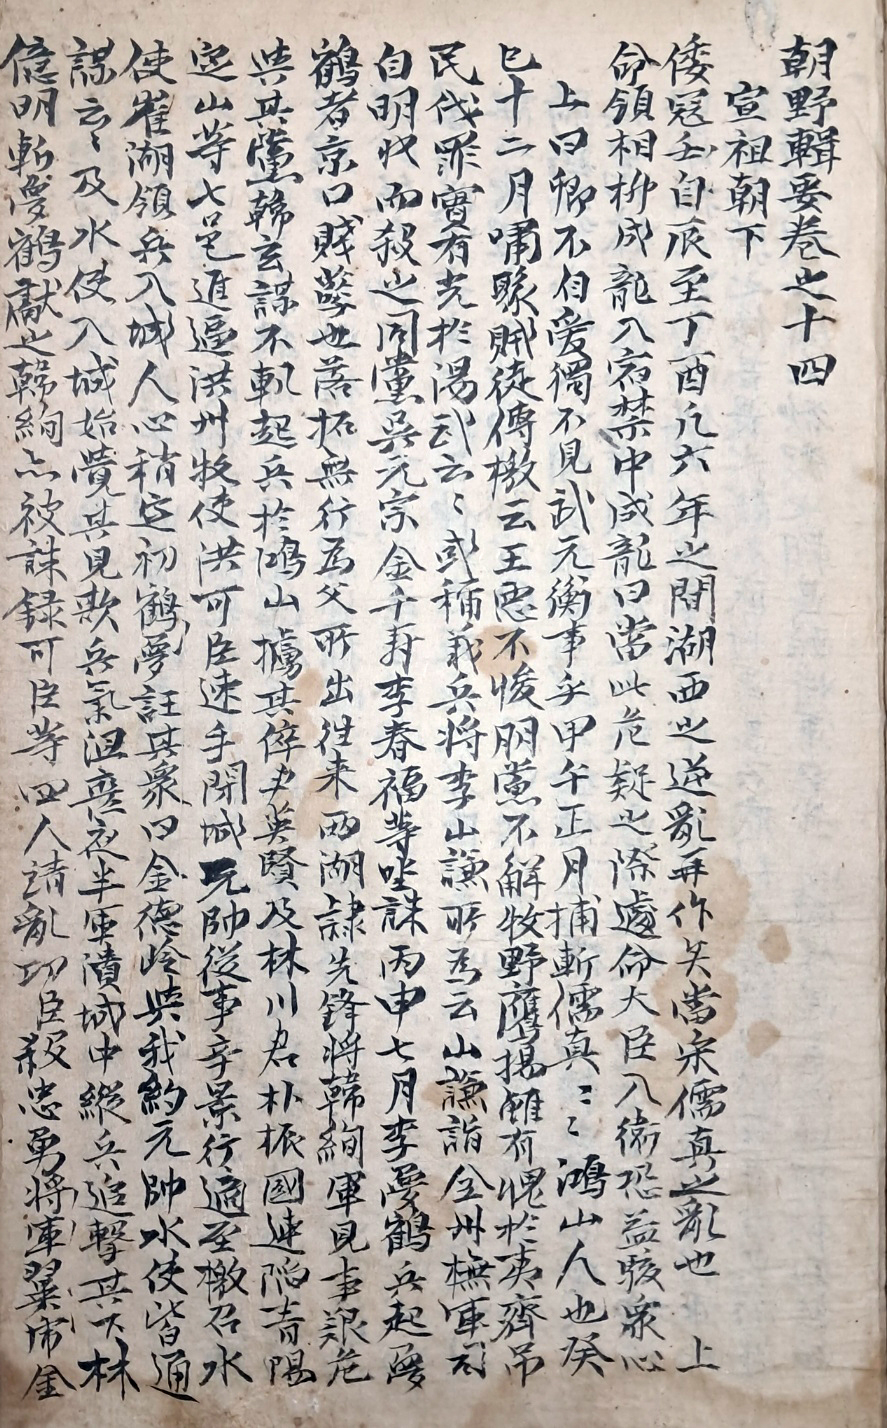 朝野輯要卷之十四
宣祖朝下
倭寇壬自辰至丁酉凡六年之間湖西之逆亂再作矣當宋儒真之亂也 上
命領相柳成龍入宿禁中成龍曰當此危疑之際遽命大臣入衛恐益駭衆心
上曰卿不自愛獨不見武元衡事乎甲午正月捕斬儒真〻〻鴻山人也癸
巳十二月嘯聚賊徒傳檄云王惡不悛朋黨不解牧野鷹揚雖有愧於夷齊吊
民伐罪實有光於湯武云〻或稱義兵將李山謙所爲云山謙詣全州撫軍司
白明狀而殺之同黨吳元宗金千壽李春福等坐誅丙申七月李夢鶴兵起夢
鶴者京口賤孽也落拓無行爲父所出往来两湖隷先鋒將韓絢軍見事艱危
與其黨韓玄謀不軌起兵於鴻山擄其倅尹英賢及林川君朴振國連陷青陽
定山等七邑進逼洪州牧使洪可臣連手閉城元帥從事辛景行適至檄召水
使崔湖領兵入城人心稍定初鶴夢誑其衆曰金德岭與我約元帥水使皆通
謀云〻及水使入城始覺其見欺兵氣沮喪夜半軍潰城中縱兵追擊其下林
億明斬夢鶴獻之韓絢亦被誅録可臣等四人請亂功臣殺忠勇將軍翼虎金